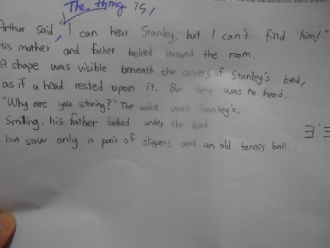 The thing is,
Arthur said, "I can hear Stanley, but I can't find him!"
His mother, and father looked around the room.
A shape was visible beneath the covers of Stanley's bed,
as if a head rested upon it. But there was no head.
"Why are you staring?" The voice was Stanley's.
Smiling, his father looked under the bed
but saw only a pair of slippers and an old tennis ball.